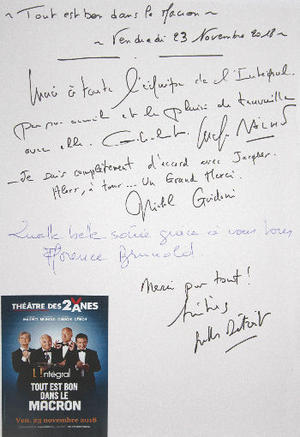 ~ Tout est bon dans le Macron ~
~ Vendredi 23 Novembre 2018 ~
Merci à toute l'équipe de l'Intégral
pour son accueil et le plaisir de travailler
avec elle.
- Je suis complètement d'accord avec Jacques.
Alors, à tous... Un Grand Merci.
Michel Guidoni
Quelle belle soirée grâce à vous tous
Florence Brunold
Merci pour tout!
Amitiés
Gilles Détroit
THÉÂTRE DES 2 ANES
L'intégral
TOUT EST BON
DANS LE
MACRON
Ven. 23 novembre 2018